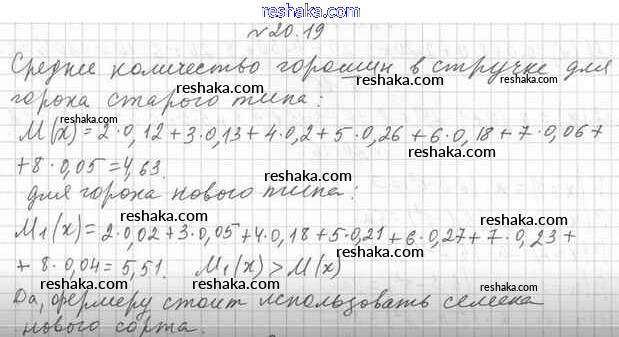 reshaka.com
№20.19
reshaka.com
Среднее количество горошин в стручке для
reshaka.com reshaka.com
гороха старого типа:
reshaka.com
M(x)=2·0,12+3·0,13+4·0,2+5·0,26+6·0,18+7·0,06+
reshaka.com
+8·0,05=4,63.
reshaka.com reshaka.com
для гороха нового типа:
reshaka.com reshaka.com
M₁(x)=2·0,02+3·0,05+4·0,18+5·0,21+6·0,27+7·0,23+
reshaka.com
+8·0,04=5,51. M₁(x)>M(x)
reshaka.com reshaka.com
Да, фермеру стоит использовать семена
reshaka.com
нового сорта.
reshaka.com